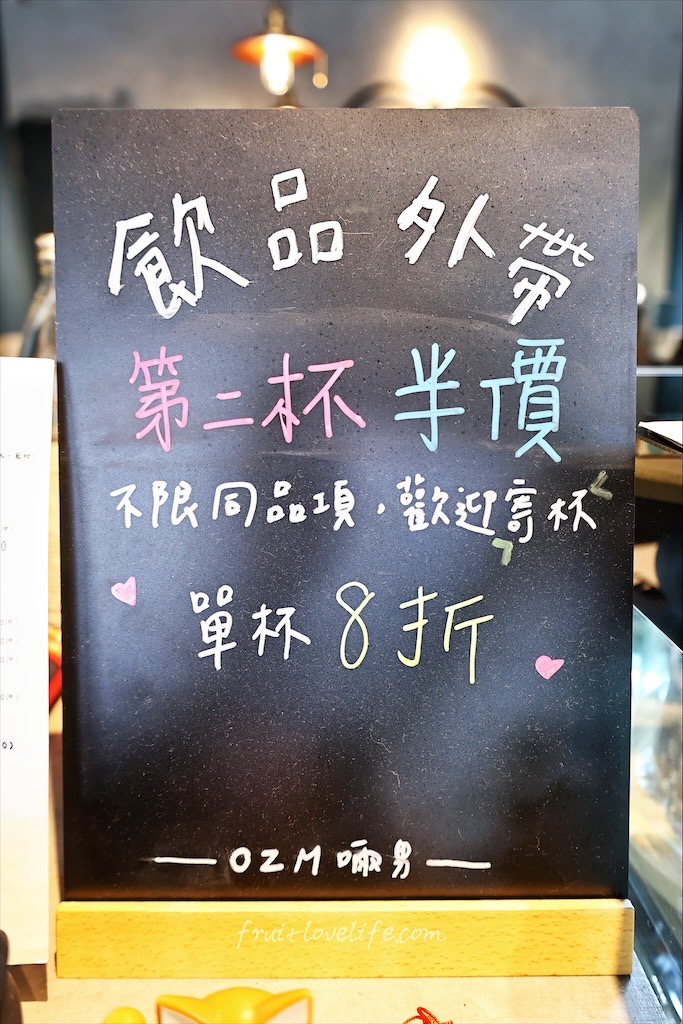 飲品外帶
第二杯半價
不限同品項，歡迎寄杯
單杯8折
OZM 啢男
fruitlovelife.com